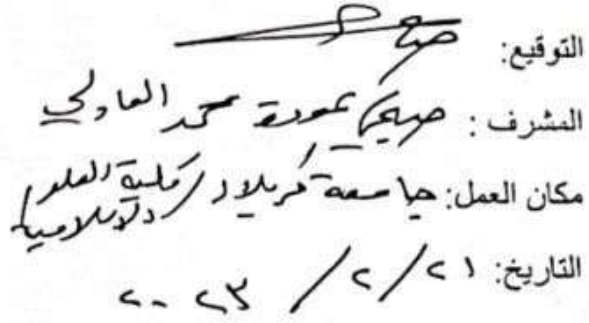 التوقيع:
المشرف: حمودة محمد العادلي
مكان العمل: جامعة كربلاء / كلية العلوم الاسلامية
التاريخ: ٢١/ ٢/ ٢٠٢٣